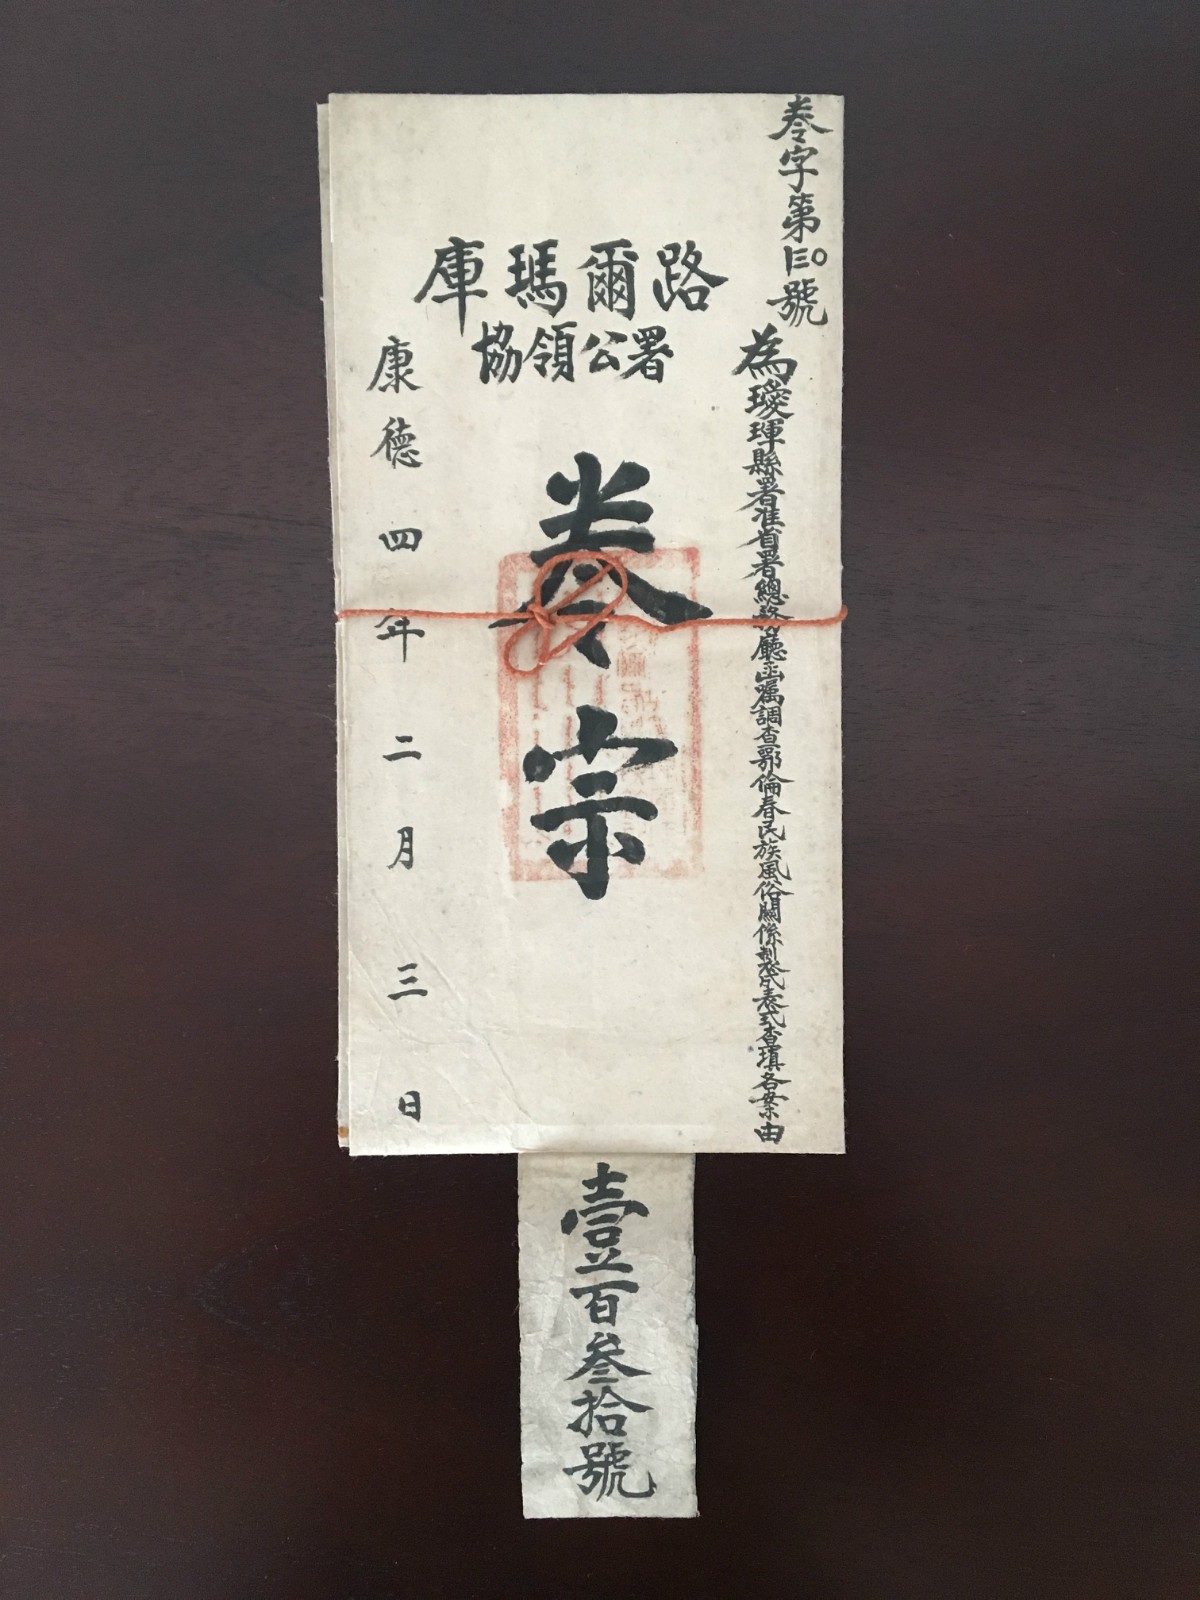 卷字第130號
為璦琿縣署准省署總務廳函嘱調查鄂倫春民族風俗關係制發民表式查填各案由
庫瑪爾路
協領公署
卷宗
康德四年二月三日
壹百叁拾號